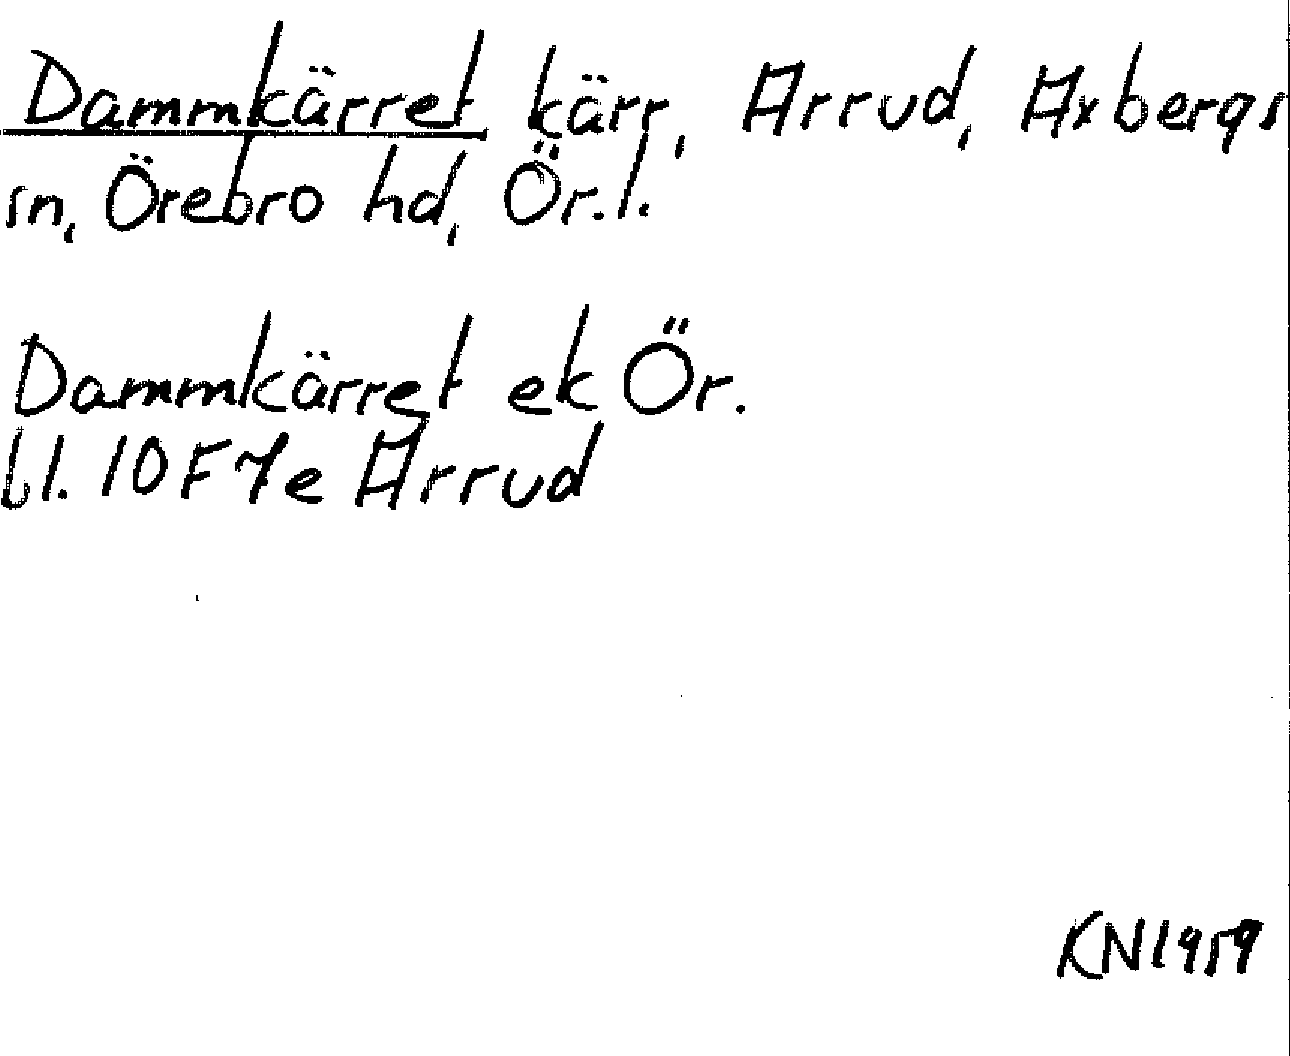 Dammkärret kärr, Arrud, Axbergs
sn, Örebro hd, Ör.l.
Dammkärret ek Ör.
bl. 10F7e Arrud
KN1959